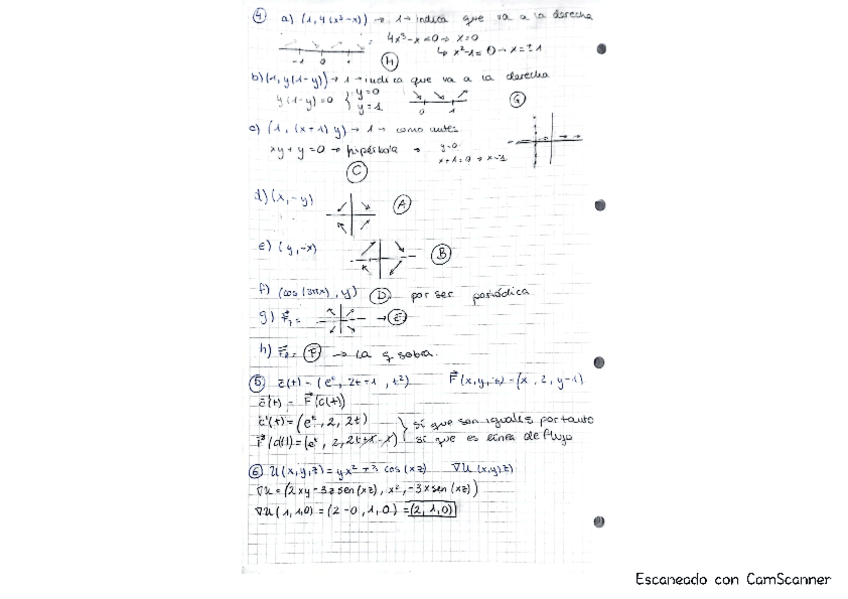 ④ a) (1, 4(x³-x)) → 1 → indica que va a la derecha
4x³-x=0 → x=0
↳ x²-1=0 → x=±1
-1 0 1
Ⓗ
b) (1, y(1-y)) → 1 → indica que va a la derecha
y(1-y)=0 { y=0
y=1
0 1
Ⓖ
c) (1, (x+1)y) → 1 → como antes
xy+y=0 → hipérbola → y=0
x+1=0 → x=-1
Ⓒ
d) (x,-y) Ⓐ
e) (y,-x) Ⓑ
f) (cos(3πx), y) Ⓓ por ser periódica
g) F⃗₁= → Ⓔ
h) F⃗₂= Ⓕ → La q sobra.
⑤ c(t) = (eᵗ, 2t+1, t²) F⃗(x,y,z)=(x, 2, y-1)
c'(t) = F⃗(c(t))
c'(t)=(eᵗ, 2, 2t)
F⃗(c(t))=(eᵗ, 2, 2t+1-1)
} sí que son iguales por tanto
sí que es línea de flujo
⑥ U(x,y,z)=yx²+3 cos(xz) ∇U(x,y,z)
∇U=(2xy-3z sen(xz), x², -3x sen(xz))
∇U(1,1,0)=(2-0,1,0)=(2,1,0)
Escaneado con CamScanner